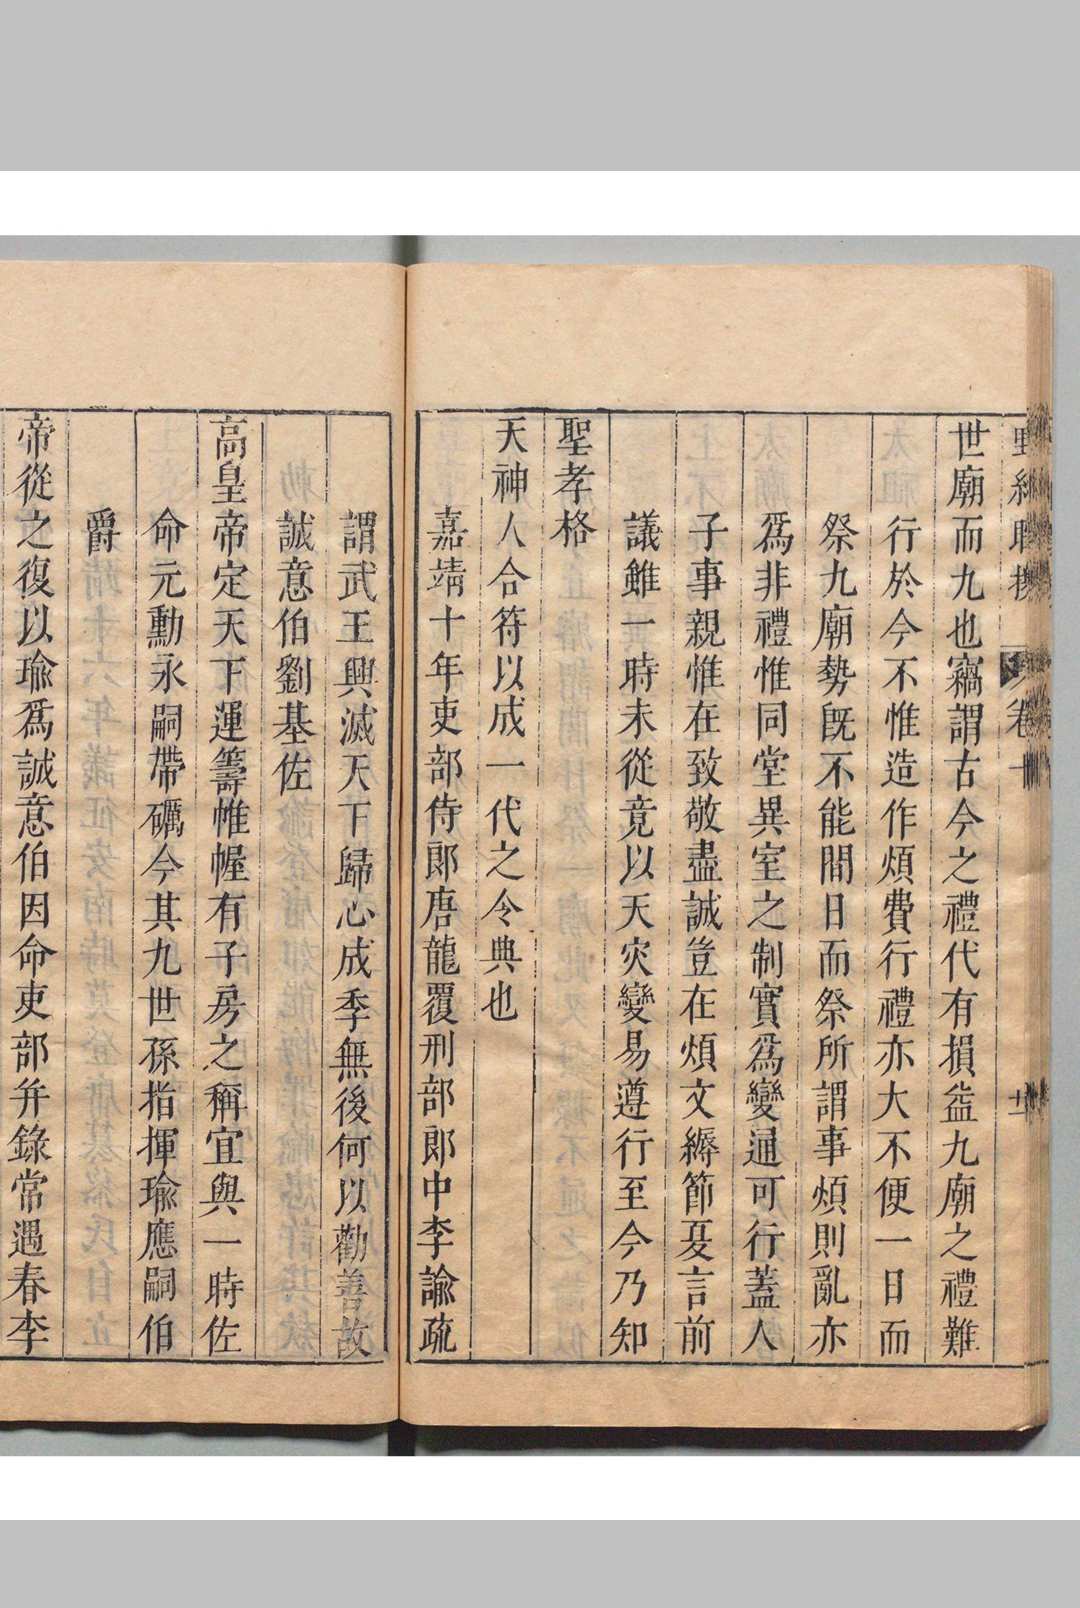 世廟而九也竊謂古今之禮代有損益九廟之禮難
行於今不惟造作煩費行禮亦大不便一日而
祭九廟勢旣不能間日而祭所謂事煩則亂亦
爲非禮惟同堂異室之制實爲變通可行蓋人
子事親惟在致敬盡誠豈在煩文縟節夏言前
議雖一時未從竟以天灾變易遵行至今乃知
聖孝格
天神人合符以成一代之令典也
嘉靖十年吏部侍郎唐龍覆刑部郎中李諭疏
謂武王興滅天下歸心成季無後何以勸善故
誠意伯劉基佐
高皇帝定天下運籌帷幄有子房之稱宜與一時佐
命元勳永嗣帶礪今其九世孫指揮瑜應嗣伯
爵
帝從之復以瑜爲誠意伯因命吏部并錄常遇春李